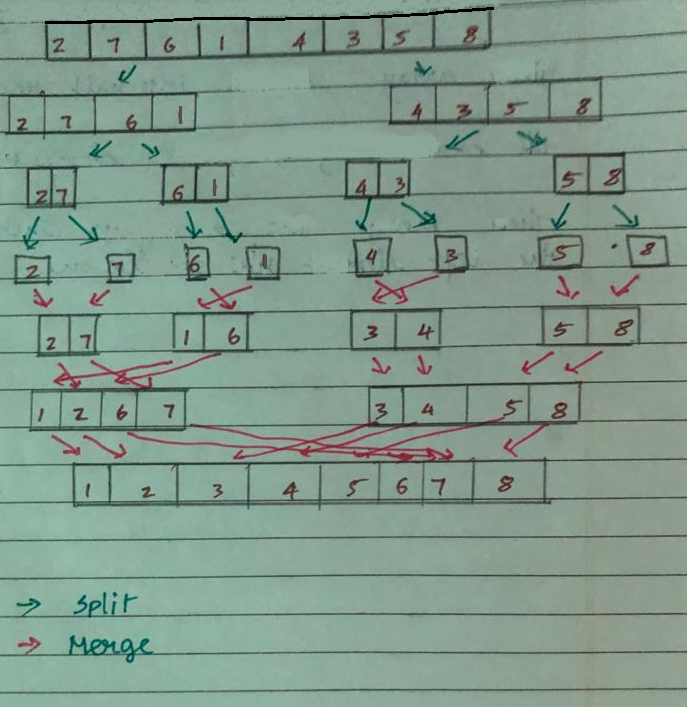 2 7 6 1 4 3 5 8
2 7 6 1 4 3 5 8
2 7 6 1 4 3 5 8
2 7 6 1 4 3 5 8
2 7 1 6 3 4 5 8
1 2 6 7 3 4 5 8
1 2 3 4 5 6 7 8
→ Split
→ Merge